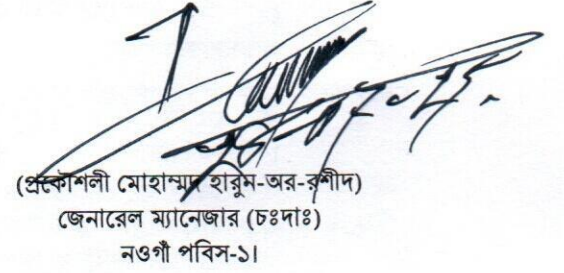 (প্রকৌশলী মোহাম্মদ হারুন-অর-রশীদ)
জেনারেল ম্যানেজার (চঃদাঃ)
নওগাঁ পবিস-১।